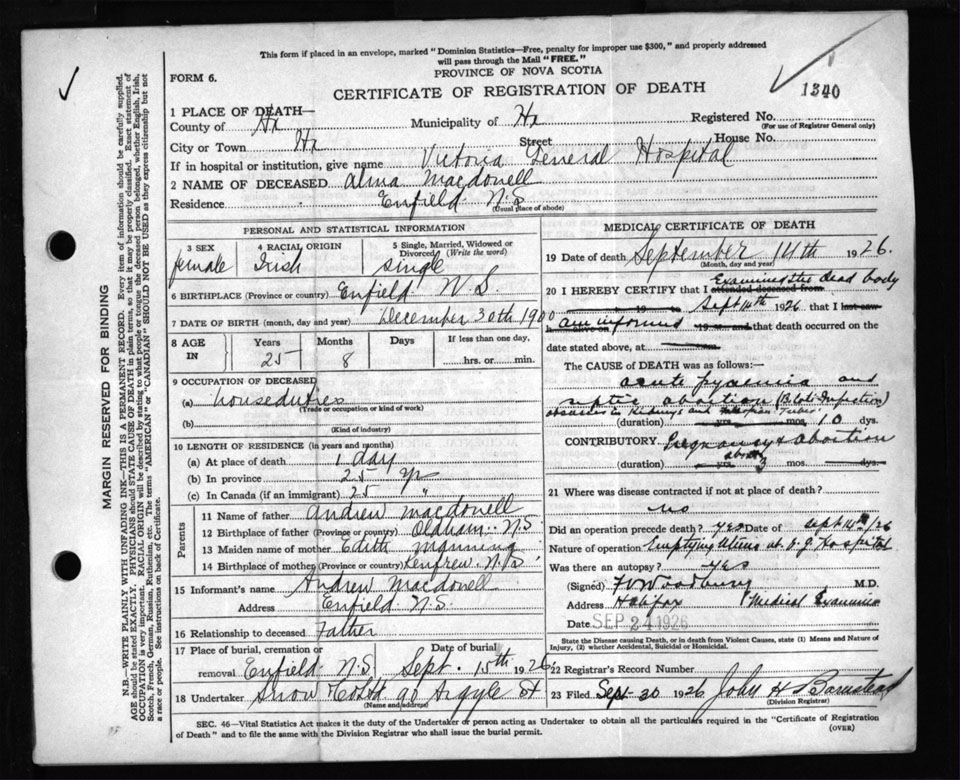 This form if placed in an envelope, marked "Dominion Statistics—Free, penalty for improper use $300," and properly addressed
will pass through the Mail "FREE."
PROVINCE OF NOVA SCOTIA
FORM 6.
CERTIFICATE OF REGISTRATION OF DEATH
1340
1 PLACE OF DEATH—
County of Hx Municipality of Hx Registered No.
(For use of Registrar General only)
City or Town Hx Street House No.
If in hospital or institution, give name Victoria General Hospital
2 NAME OF DECEASED Alma Macdonell
Residence Enfield N.S
(Usual place of abode)
MARGIN RESERVED FOR BINDING
N.B.—WRITE PLAINLY WITH UNFADING INK—THIS IS A PERMANENT RECORD. Every item of information should be carefully supplied.
AGE should be stated EXACTLY. PHYSICIANS should STATE CAUSE OF DEATH in plain terms, so that it may be properly classified. Exact statement of
OCCUPATION is very important. RACIAL ORIGIN will be described by stating to what people or tongue the deceased person belonged, whether English, Irish,
Scotch, French, German, Russian, Ruthenian, etc. The terms "AMERICAN" or "CANADIAN" SHOULD NOT BE USED as they express citizenship but not
a race or people. See instructions on back of Certificate.
PERSONAL AND STATISTICAL INFORMATION
3 SEX 4 RACIAL ORIGIN 5 Single, Married, Widowed or
Divorced (Write the word)
female Irish single
6 BIRTHPLACE (Province or country) Enfield N.S.
7 DATE OF BIRTH (month, day and year) December 30th 1900
8 AGE IN Years Months Days If less than one day,
25 8 hrs. or min.
9 OCCUPATION OF DECEASED
(a) houseduties
(Trade or occupation or kind of work)
(b)
(Kind of industry)
10 LENGTH OF RESIDENCE (in years and months)
(a) At place of death 1 day
(b) In province 25 yr
(c) In Canada (if an immigrant) 25 "
Parents
11 Name of father Andrew Macdonell
12 Birthplace of father (Province or country) Oldham N.S
13 Maiden name of mother Edith Manning
14 Birthplace of mother (Province or country) Renfrew N.S
15 Informant's name Andrew Macdonell
Address Enfield N.S.
16 Relationship to deceased Father
17 Place of burial, cremation or Date of burial
removal Enfield N.S. Sept. 15th 1926
18 Undertaker Snow 90 Argyle St
(Name and address)
MEDICAL CERTIFICATE OF DEATH
19 Date of death September 14th 1926.
(Month, day and year)
Examined the dead body
20 I HEREBY CERTIFY that I attended deceased from
Sept 14th 1926 that I last saw
am informed and that death occurred on the
date stated above, at
The CAUSE OF DEATH was as follows:—
acute pyaemia and
septic abortion
abscesses in Kidneys and Tubes
(duration) yrs. mos. 10 dys.
CONTRIBUTORY. Pregnancy & abortion
about
(duration) yrs. 3 mos. dys.
21 Where was disease contracted if not at place of death?
no
Did an operation precede death? yes Date of Sept 14th/26
Nature of operation Emptying Uterus at V.G. Hospital
Was there an autopsy? yes
(Signed) F V Woodbury M.D.
Address Halifax Medical Examiner
Date SEP 24 1926
State the Disease causing Death, or in death from Violent Causes, state (1) Means and Nature of
Injury, (2) whether Accidental, Suicidal or Homicidal.
22 Registrar's Record Number
23 Filed Sept 30 1926 John H Barnstead
(Division Registrar)
SEC. 46—Vital Statistics Act makes it the duty of the Undertaker or person acting as Undertaker to obtain all the particulars required in the "Certificate of Registration
of Death" and to file the same with the Division Registrar who shall issue the burial permit.
(OVER)